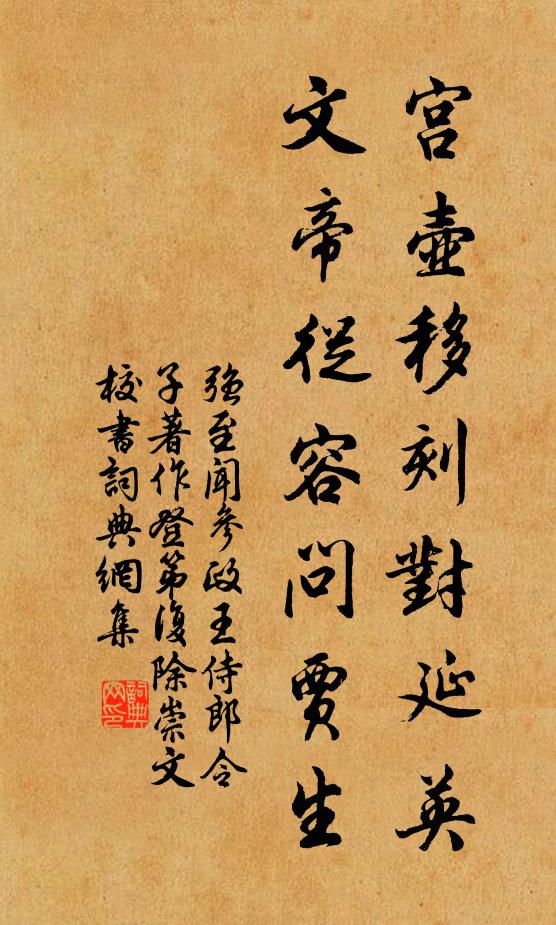 宫壺移刻對延英
文帝從容問賈生
强至聞參政王侍郎令
子著作登第復除崇文
校書詞典網集
詞典
网印